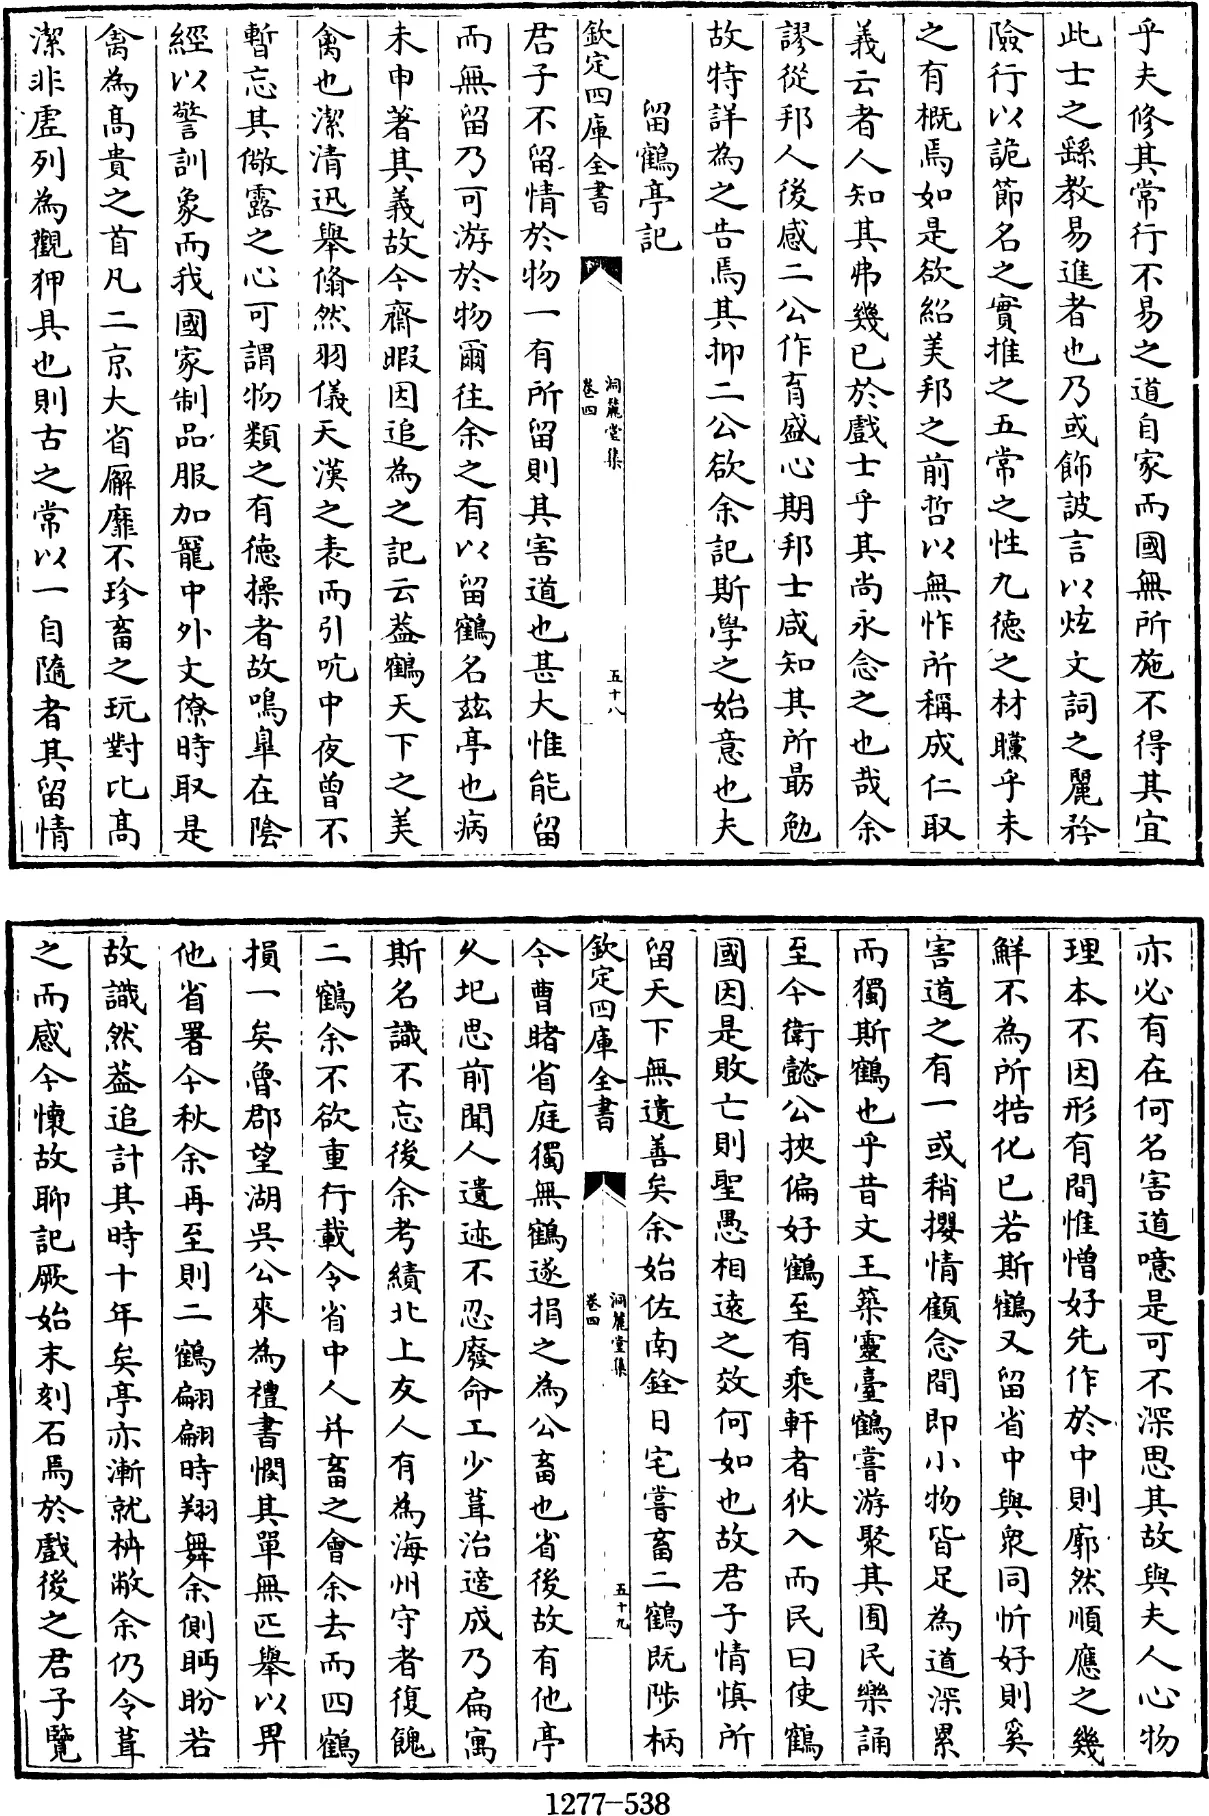 乎夫修其常行不易之道自家而國無所施不得其宜
此士之繇教易進者也乃或飾詖言以炫文詞之麗矜
險行以詭節名之實推之五常之性九德之材矘乎未
之有概焉如是欲紹美邦之前哲以無怍所稱成仁取
義云者人知其弗幾已於戲士乎其尚永念之也哉余
謬從邦人後感二公作育盛心期邦士咸知其所勗勉
故特詳為之告焉其抑二公欲余記斯學之始意也夫
留鶴亭記
欽定四庫全書
洞麓堂集
卷四
五十八
君子不留情於物一有所留則其害道也甚大惟能留
而無留乃可游於物爾往余之有以留鶴名茲亭也病
未申著其義故今齋暇因追為之記云葢鶴天下之美
禽也潔清迅舉翛然羽儀天漢之表而引吭中夜曾不
暫忘其儆露之心可謂物類之有徳操者故鳴臯在陰
經以警訓象而我國家制品服加寵中外文僚時取是
禽為高貴之首凡二京大省廨靡不珍畜之玩對比高
潔非虛列為觀狎具也則古之常以一自隨者其留情
亦必有在何名害道噫是可不深思其故與夫人心物
理本不因形有間惟憎好先作於中則廓然順應之幾
鮮不為所牿化已若斯鶴又留省中與衆同忻好則奚
害道之有一或稍攖情顧念間即小物皆足為道深累
而獨斯鶴也乎昔文王築靈臺鶴嘗游聚其囿民樂誦
至今衛懿公挾偏好鶴至有乘軒者狄入而民曰使鶴
國因是敗亡則聖愚相遠之效何如也故君子情慎所
留天下無遺善矣余始佐南銓日宅嘗畜二鶴既陟柄
欽定四庫全書
洞麓堂集
卷四
五十九
今曹睹省庭獨無鶴遂捐之為公畜也省後故有他亭
乆圯思前聞人遺迹不忍廢命工少葺治適成乃扁寓
斯名識不忘後余考績北上友人有為海州守者復餽
二鶴余不欲重行載令省中人并畜之會余去而四鶴
損一矣魯郡望湖吳公來為禮書憫其單無匹舉以畀
他省署今秋余再至則二鶴翩翩時翔舞余側眄盼若
故識然葢追計其時十年矣亭亦漸就枘敝余仍令葺
之而感今懷故聊記厥始末刻石焉於戲後之君子覽
1277—538